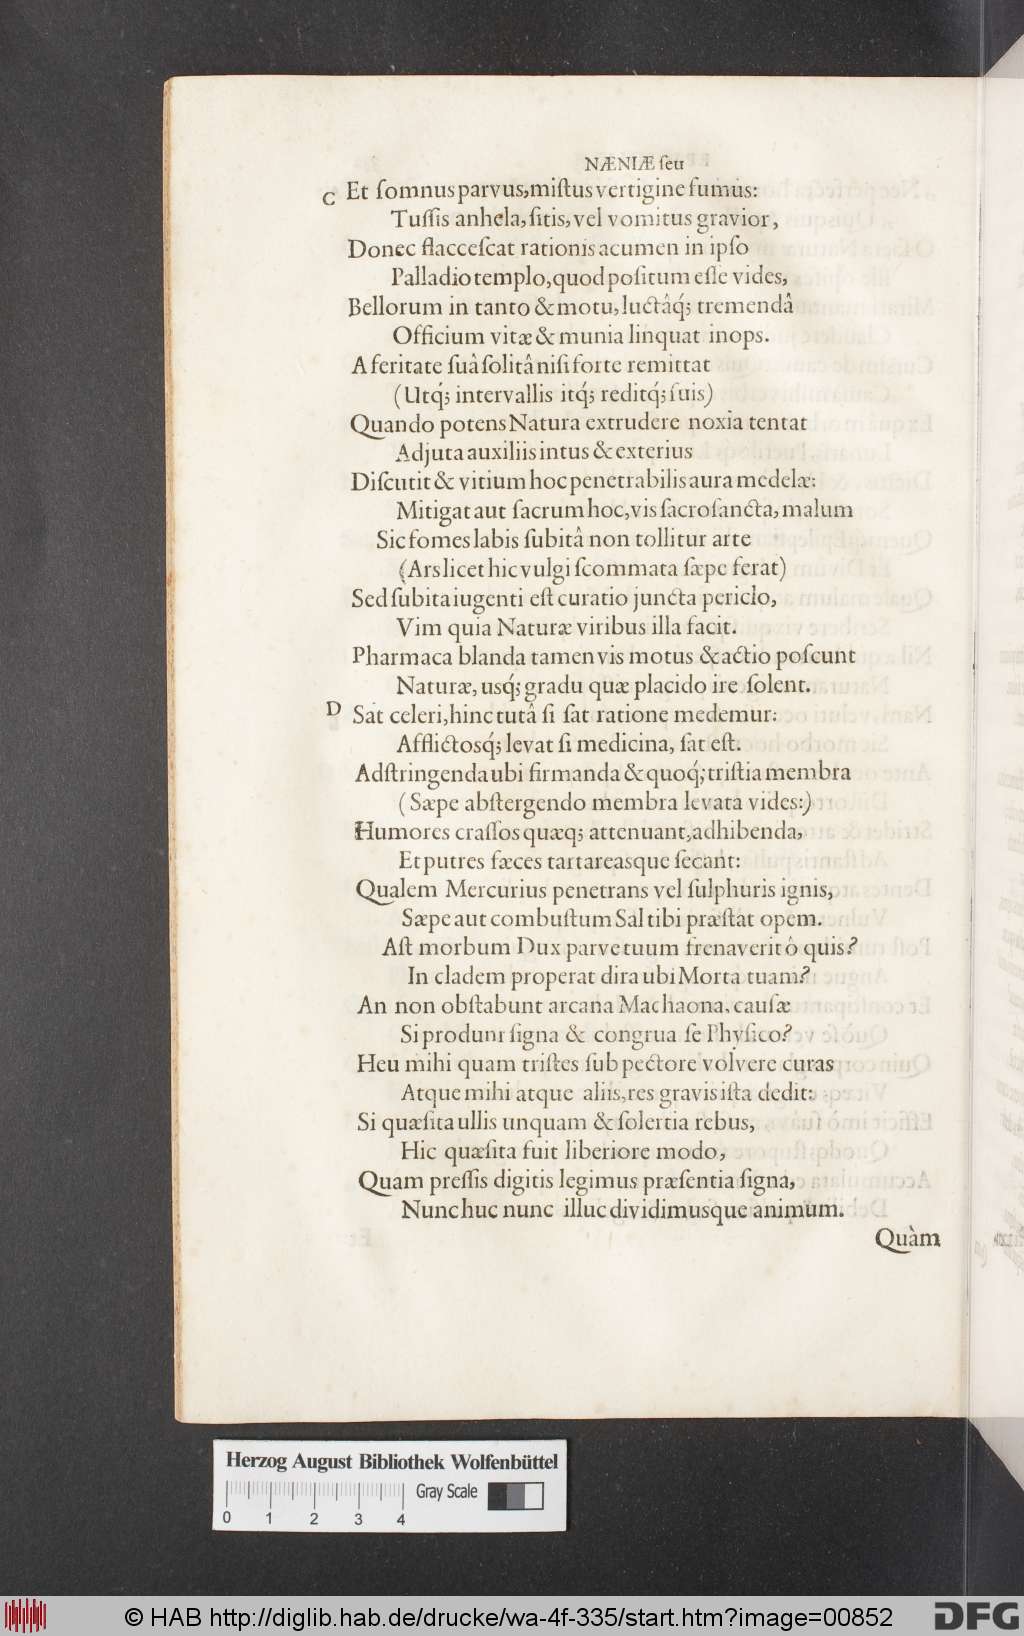 NÆNIÆ ſeu
C Et ſomnus parvus, miſtus vertigine fumus:
Tuſſis anhela, ſitis, vel vomitus gravior,
Donec flacceſcat rationis acumen in ipſo
Palladio templo, quod poſitum eſſe vides,
Bellorum in tanto & motu, luctâq́; tremendâ
Officium vitæ & munia linquat inops.
A feritate ſuâ ſolitâ niſi forte remittat
(Utq́; intervallis itq́; reditq́; ſuis)
Quando potens Natura extrudere noxia tentat
Adjuta auxiliis intus & exterius
Diſcutit & vitium hoc penetrabilis aura medelæ:
Mitigat aut ſacrum hoc, vis ſacroſancta, malum
Sic fomes labis ſubitâ non tollitur arte
(Ars licet hic vulgi ſcommata ſæpe ferat)
Sed ſubita iugenti eſt curatio juncta periclo,
Vim quia Naturæ viribus illa facit.
Pharmaca blanda tamen vis motus & actio poſcunt
Naturæ, usq́; gradu quæ placido ire ſolent.
D Sat celeri, hinc tutâ ſi ſat ratione medemur:
Afflictosq́; levat ſi medicina, ſat eſt.
Adſtringenda ubi firmanda & quoq́; triſtia membra
(Sæpe abſtergendo membra levata vides:)
Humores craſſos quæq; attenuant, adhibenda,
Et putres fæces tartareasque ſecant:
Qualem Mercurius penetrans vel ſulphuris ignis,
Sæpe aut combuſtum Sal tibi præſtat opem.
Aſt morbum Dux parve tuum frenaverit ô quis?
In cladem properat dira ubi Morta tuam?
An non obſtabunt arcana Machaona, cauſæ
Si produnt ſigna & congrua ſe Phyſico?
Heu mihi quam triſtes ſub pectore volvere curas
Atque mihi atque aliis, res gravis iſta dedit:
Si quæſita ullis unquam & ſolertia rebus,
Hic quæſita fuit liberiore modo,
Quam preſſis digitis legimus præſentia ſigna,
Nunc huc nunc illuc dividimusque animum.
Quàm
Herzog August Bibliothek Wolfenbüttel
0 1 2 3 4 Gray Scale
© HAB http://diglib.hab.de/drucke/wa-4f-335/start.htm?image=00852
DFG